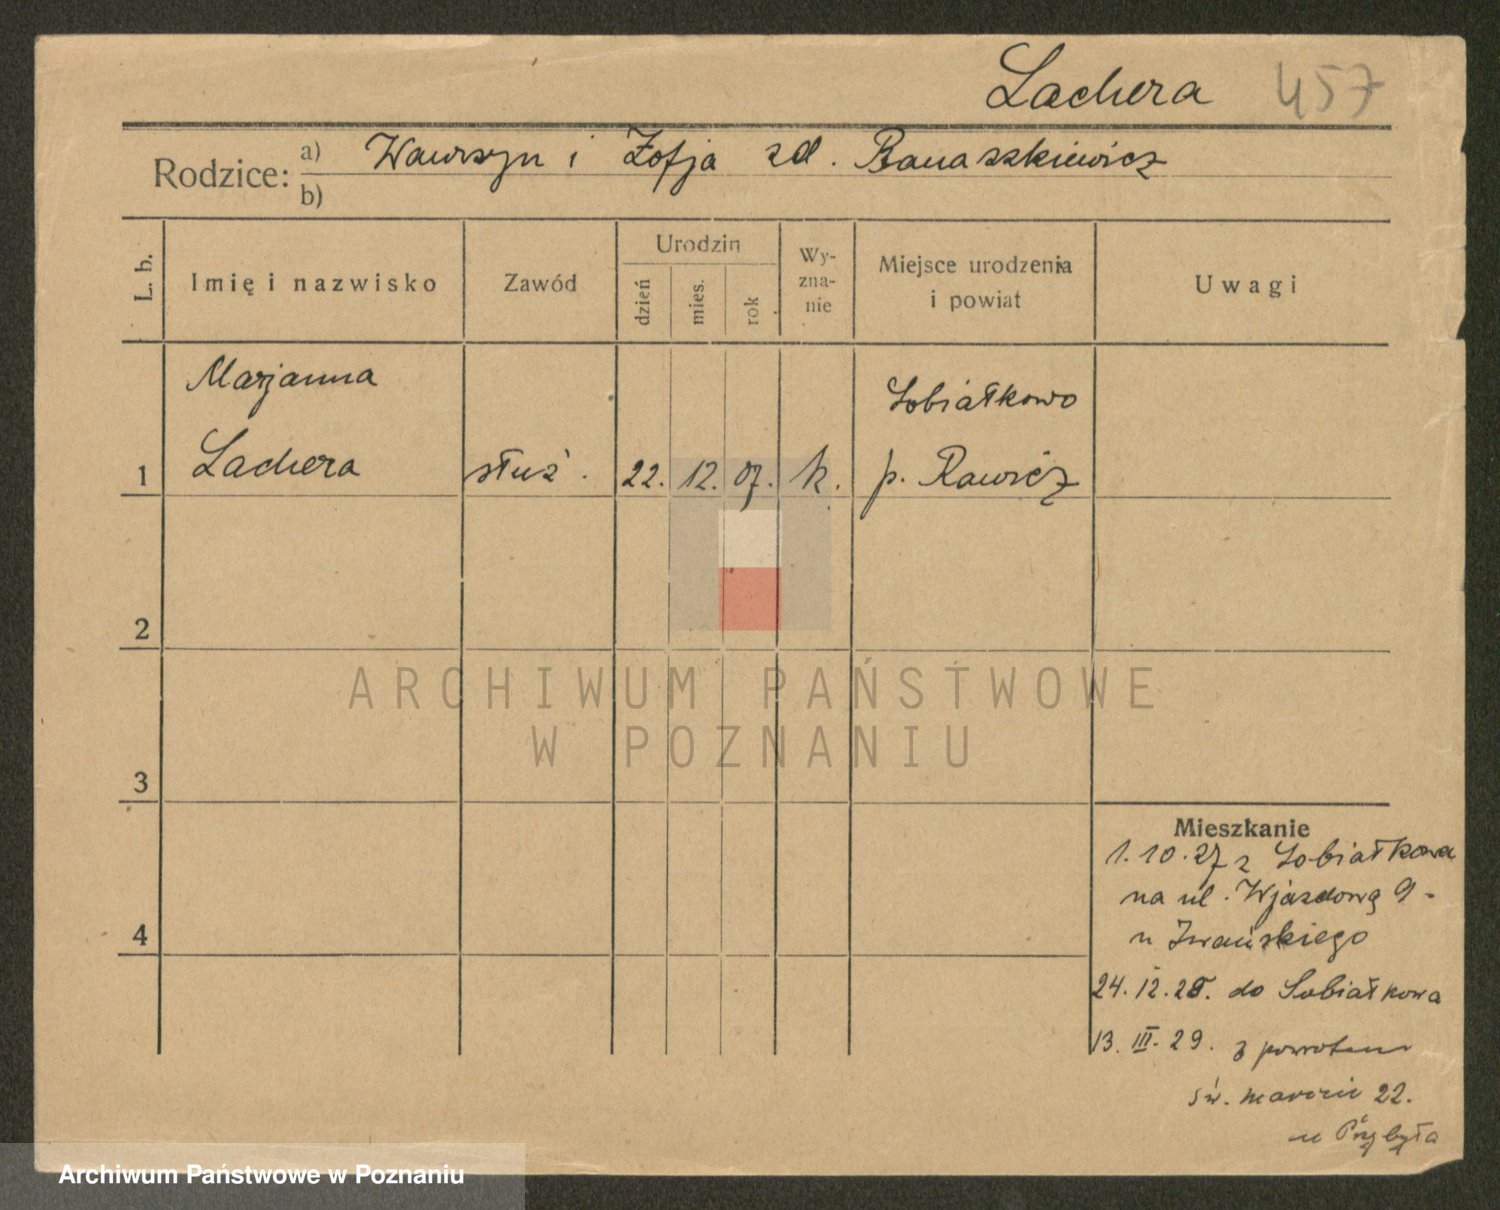 Lachera 457
Rodzice: a) Wawrzyn i Zofja zd. Banaszkiewicz
b)
L. b. Imię i nazwisko Zawód Urodzin dzień mies. rok Wy-zna-nie Miejsce urodzenia i powiat Uwagi
Marjanna Sobiałkowo
1 Lachera służ. 22. 12. 07. k. p. Rawicz
2
ARCHIWUM PAŃSTWOWE
W POZNANIU
3
Mieszkanie
1.10.27 z Sobiałkowa
na ul. Wjazdową 9 -
4
u Iwańskiego
24.12.28. do Sobiałkowa
13. III. 29. z powrotem
św. Marcin 22.
u Przybyła
Archiwum Państwowe w Poznaniu